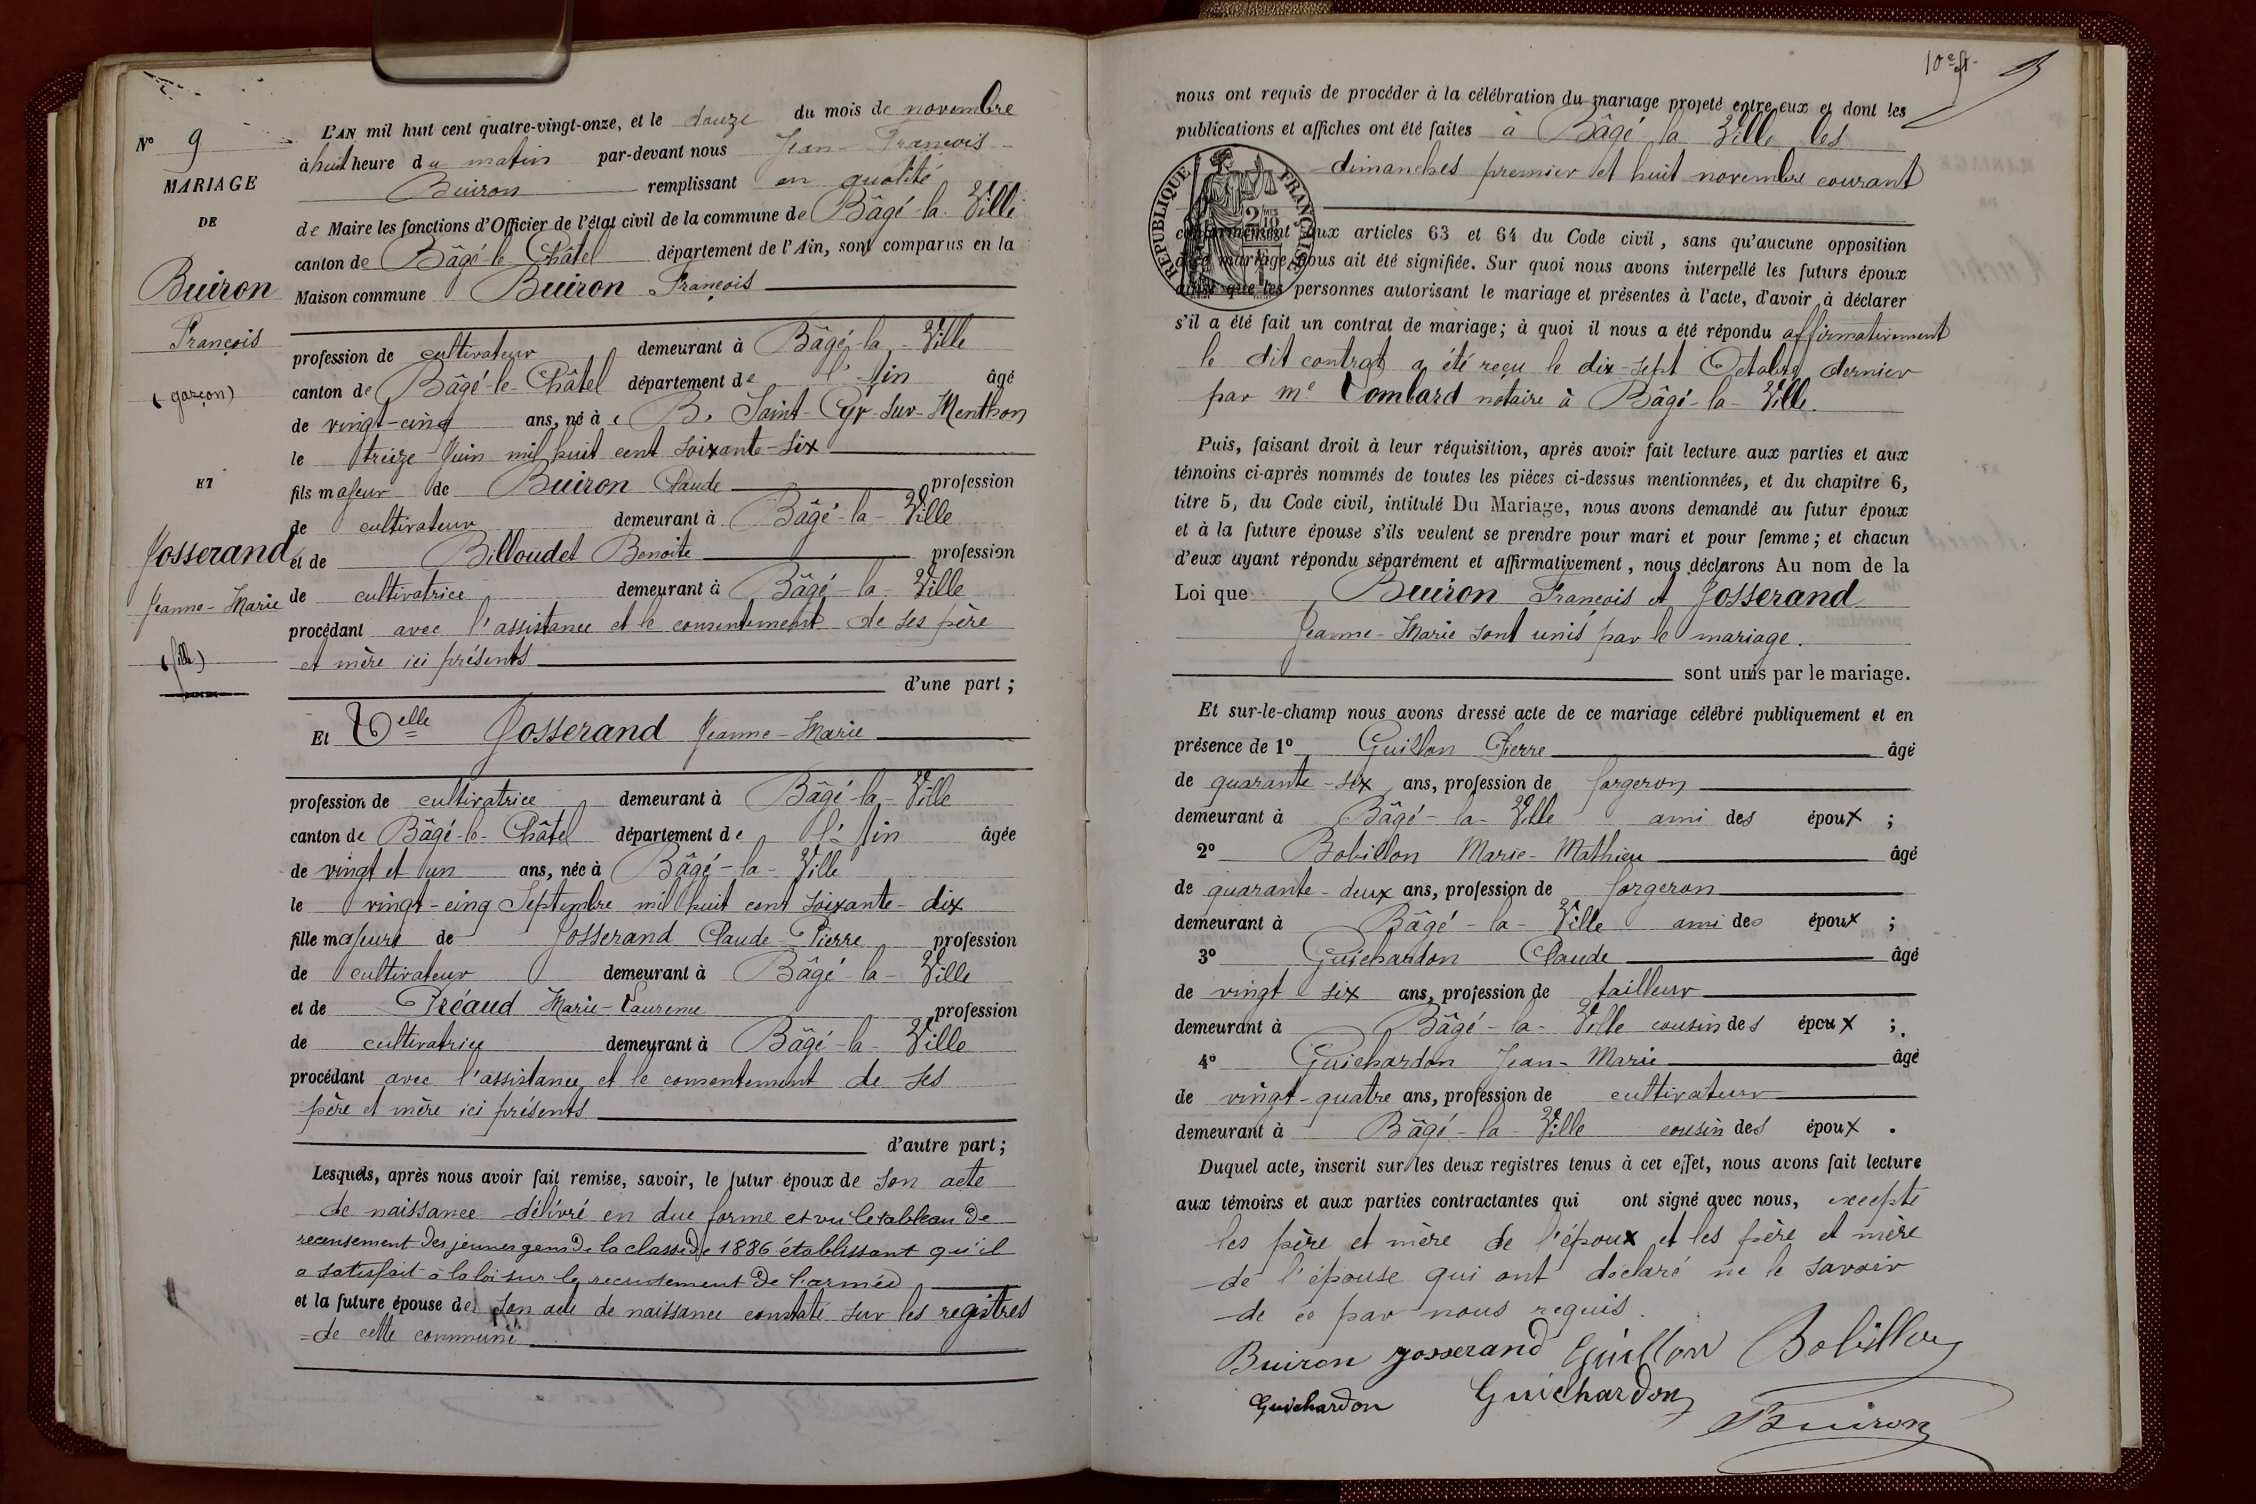 N° 9
MARIAGE
DE
Buiron
François
(garçon)
ET
Josserand
Jeanne-Marie
(fille)
L'AN mil huit cent quatre-vingt-onze, et le douze du mois de novembre
à huit heure du matin par-devant nous Jean-François
Buiron remplissant en qualité
de Maire les fonctions d'Officier de l'état civil de la commune de Bâgé-la-Ville
canton de Bâgé-le-Châtel département de l'Ain, sont comparus en la
Maison commune Buiron François
profession de cultivateur demeurant à Bâgé-la-Ville
canton de Bâgé-le-Châtel département de l'Ain âgé
de vingt-cinq ans, né à Saint-Cyr-sur-Menthon
le treize Juin mil huit cent soixante-six
fils majeur de Buiron Claude profession
de cultivateur demeurant à Bâgé-la-Ville
et de Billoudet Benoite profession
de cultivatrice demeurant à Bâgé-la-Ville
procédant avec l'assistance et le consentement de ses père
et mère ici présents
d'une part ;
Et Delle Josserand Jeanne-Marie
profession de cultivatrice demeurant à Bâgé-la-Ville
canton de Bâgé-le-Châtel département de l'Ain âgée
de vingt et un ans, née à Bâgé-la-Ville
le vingt-cinq Septembre mil huit cent soixante-dix
fille majeure de Josserand Claude-Pierre profession
de cultivateur demeurant à Bâgé-la-Ville
et de Préaud Marie-Laurence profession
de cultivatrice demeurant à Bâgé-la-Ville
procédant avec l'assistance et le consentement de ses
père et mère ici présents
d'autre part ;
Lesquels, après nous avoir fait remise, savoir, le futur époux de son acte
de naissance délivré en due forme et vu le tableau de
recensement des jeunes gens de la classe de 1886 établissant qu'il
a satisfait à la loi sur le recrutement de l'armée
et la future épouse de son acte de naissance constaté sur les registres
de cette commune
10e ft
nous ont requis de procéder à la célébration du mariage projeté entre eux et dont les
publications et affiches ont été faites à Bâgé-la-Ville les
dimanches premier et huit novembre courant
RÉPUBLIQUE FRANÇAISE
2/10
conformément aux articles 63 et 64 du Code civil, sans qu'aucune opposition
à ce mariage nous ait été signifiée. Sur quoi nous avons interpellé les futurs époux
ainsi que les personnes autorisant le mariage et présentes à l'acte, d'avoir à déclarer
s'il a été fait un contrat de mariage ; à quoi il nous a été répondu affirmativement
le dit contrat a été reçu le dix-sept Octobre dernier
par Me Lombard notaire à Bâgé-la-Ville.
Puis, faisant droit à leur réquisition, après avoir fait lecture aux parties et aux
témoins ci-après nommés de toutes les pièces ci-dessus mentionnées, et du chapitre 6,
titre 5, du Code civil, intitulé Du Mariage, nous avons demandé au futur époux
et à la future épouse s'ils veulent se prendre pour mari et pour femme ; et chacun
d'eux ayant répondu séparément et affirmativement, nous déclarons Au nom de la
Loi que Buiron François et Josserand
Jeanne-Marie sont unis par le mariage.
sont unis par le mariage.
Et sur-le-champ nous avons dressé acte de ce mariage célébré publiquement et en
présence de 1° Guillon Pierre âgé
de quarante-six ans, profession de forgeron
demeurant à Bâgé-la-Ville ami des époux ;
2° Bobillon Marie-Mathieu âgé
de quarante-deux ans, profession de forgeron
demeurant à Bâgé-la-Ville ami des époux ;
3° Guichardon Claude âgé
de vingt six ans, profession de tailleur
demeurant à Bâgé-la-Ville cousin des époux ;
4° Guichardon Jean-Marie âgé
de vingt-quatre ans, profession de cultivateur
demeurant à Bâgé-la-Ville cousin des époux .
Duquel acte, inscrit sur les deux registres tenus à cet effet, nous avons fait lecture
aux témoins et aux parties contractantes qui ont signé avec nous, excepté
les père et mère de l'époux et les père et mère
de l'épouse qui ont déclaré ne le savoir
de ce par nous requis.
Buiron Josserand Guillon Bobillon
Guichardon Guichardon
Buiron